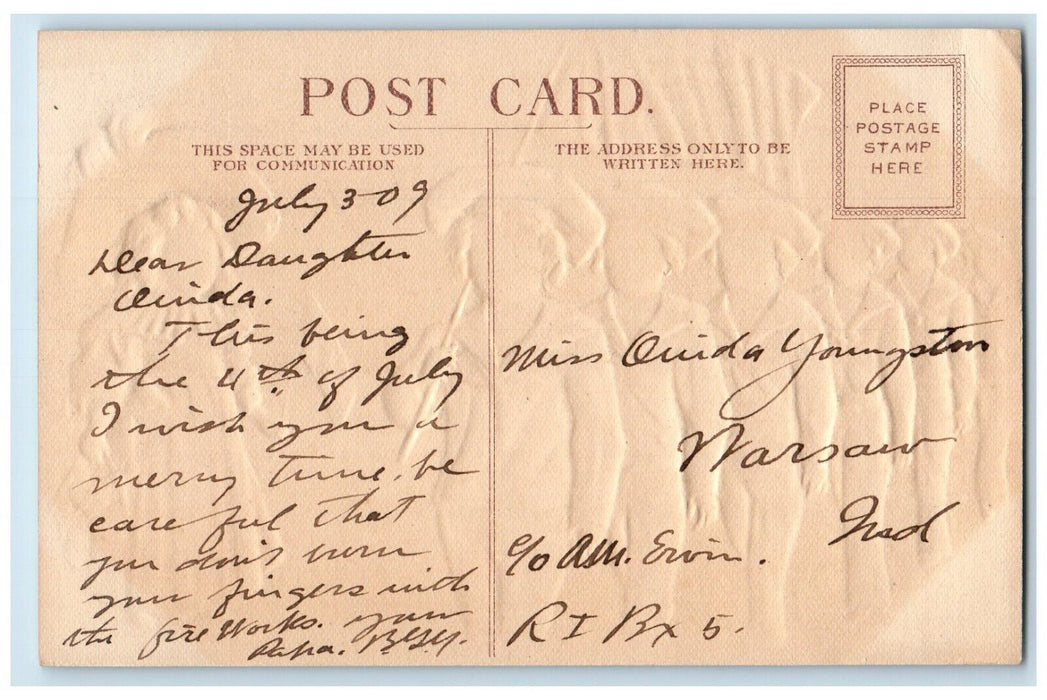 POST CARD.
THIS SPACE MAY BE USED
FOR COMMUNICATION
THE ADDRESS ONLY TO BE
WRITTEN HERE.
PLACE
POSTAGE
STAMP
HERE
July 3-09
Dear Daughter
Ouida.
This being
the 4th of July
I wish you a
merry time. be
careful that
you don't burn
your fingers with
the fire works. your
Papa.
Miss Ouida Youngston
Warsaw
Ind
c/o Erwin.
R I Bx 5.